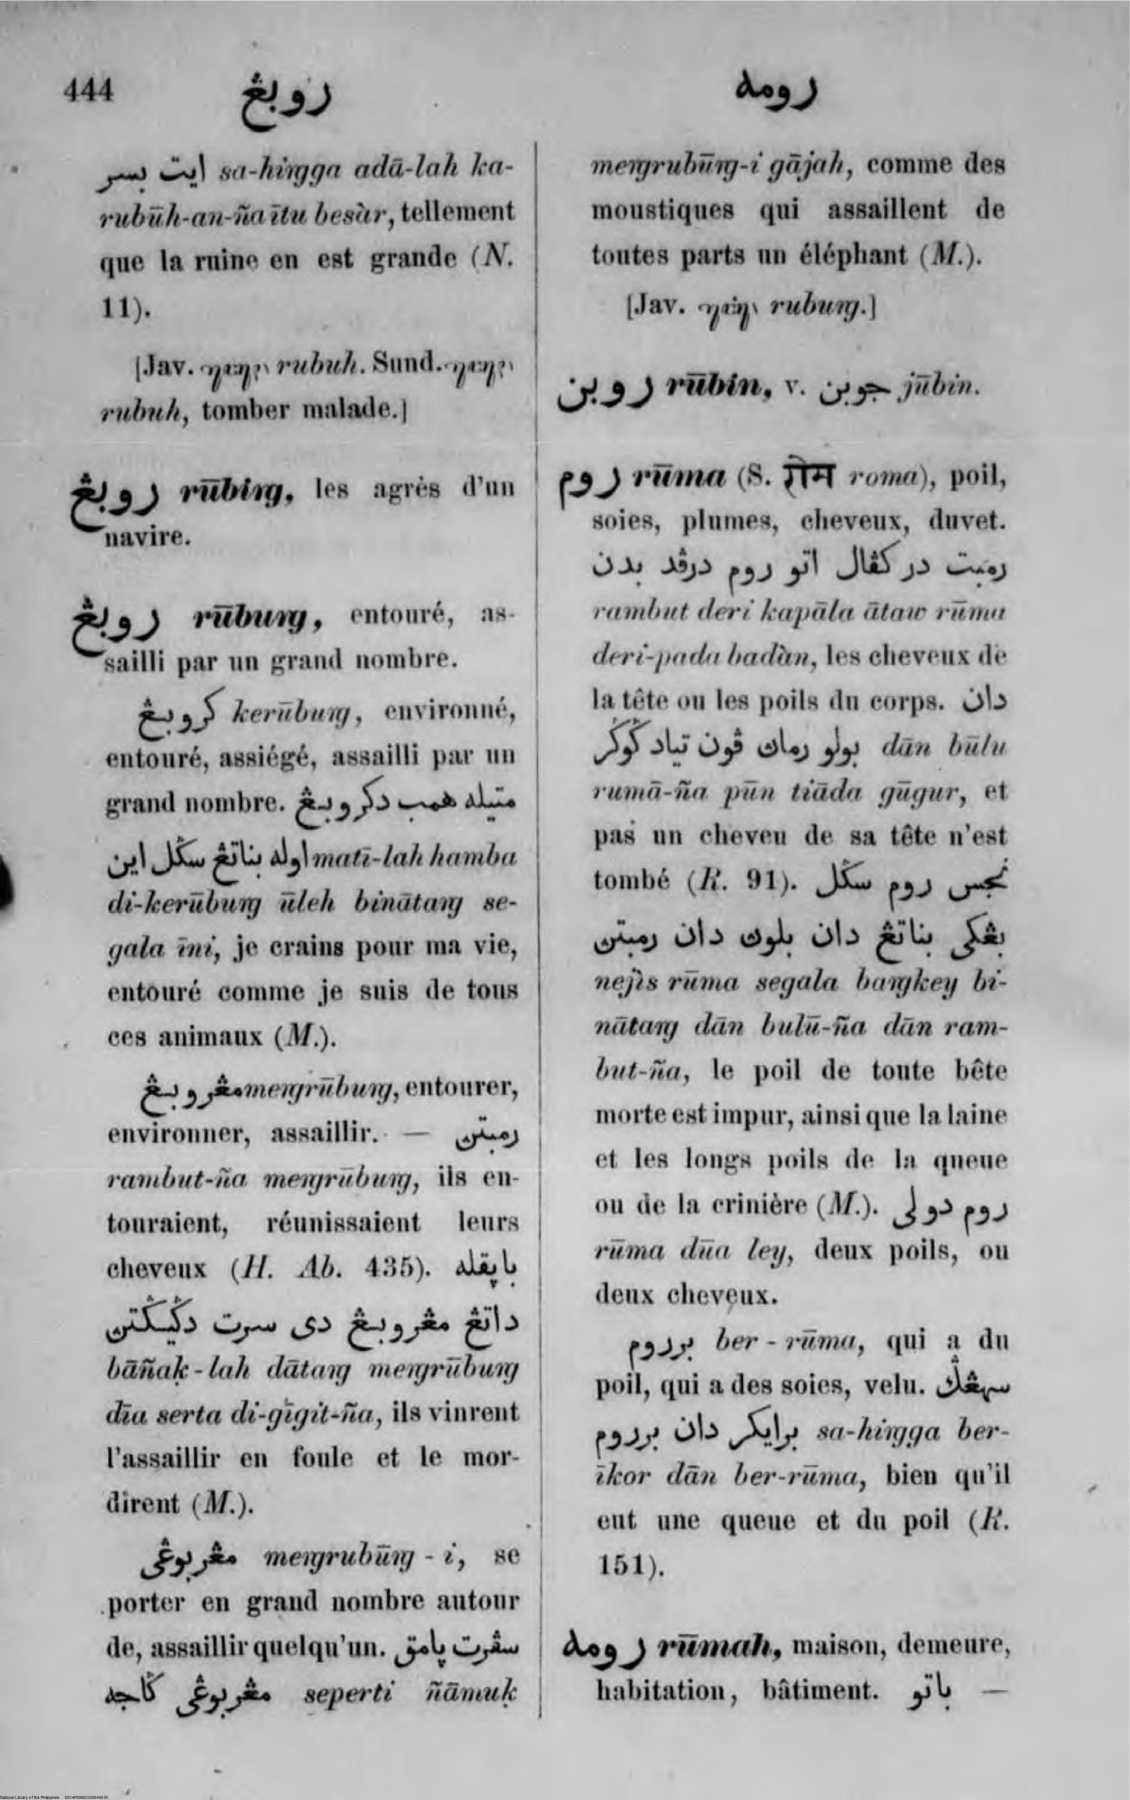 444
روبڠ
رومه
ايت بسر sa-hiṅgga adā-lah ka-
rubūh-an-ña ītu besàr, tellement
que la ruine en est grande (N.
11).
[Jav. rubuh. Sund.
rubuh, tomber malade.]
روبڠ rūbiṅg, les agrès d'un
navire.
روبڠ rūbuṅg, entouré, as-
sailli par un grand nombre.
كروبڠ kerūbuṅg, environné,
entouré, assiégé, assailli par un
grand nombre. متيله همب دكروبڠ
اوله بناتڠ سݢل اين matī-lah hamba
di-kerūbuṅg ūleh binātaṅg se-
gala īni, je crains pour ma vie,
entouré comme je suis de tous
ces animaux (M.).
مڠروبڠ meṅgrūbuṅg, entourer,
environner, assaillir. — رمبتن
rambut-ña meṅgrūbuṅg, ils en-
touraient, réunissaient leurs
cheveux (H. Ab. 435).
داتڠ مڠروبڠ دى سرت دݢيݢتن
bāñaḳ-lah dātaṅg meṅgrūbuṅg
dīa serta di-gīgit-ña, ils vinrent
l'assaillir en foule et le mor-
dirent (M.).
مڠربوڠى meṅgrubūṅg-i, se
porter en grand nombre autour
de, assaillir quelqu'un. سڤرت يامق
مڠربوڠى ݢاجه seperti ñāmuḳ
meṅgrubūṅg-i gājah, comme des
moustiques qui assaillent de
toutes parts un éléphant (M.).
[Jav. rubuṅg.]
روبن rūbin, v. جوبن jūbin.
روم rūma (S. रोम roma), poil,
soies, plumes, cheveux, duvet.
رمبت در كڤال اتو روم درڤد بدن
rambut deri kapāla ātaw rūma
deri-pada badàn, les cheveux de
la tête ou les poils du corps. دان
بولو رمان ڤون تياد ݢوݢر dān būlu
rumā-ña pūn tiāda gūgur, et
pas un cheveu de sa tête n'est
tombé (R. 91). نجس روم سݢل
بڠكى بناتڠ دان بلون دان رمبتن
nejìs rūma segala baṅgkey bi-
nātaṅg dān bulū-ña dān ram-
but-ña, le poil de toute bête
morte est impur, ainsi que la laine
et les longs poils de la queue
ou de la crinière (M.). روم دولى
rūma dūa ley, deux poils, ou
deux cheveux.
برروم ber-rūma, qui a du
poil, qui a des soies, velu. سهڠݢ
برايكر دان برروم sa-hiṅgga ber-
īkor dān ber-rūma, bien qu'il
eut une queue et du poil (R.
151).
رومه rūmah, maison, demeure,
habitation, bâtiment. باتو —